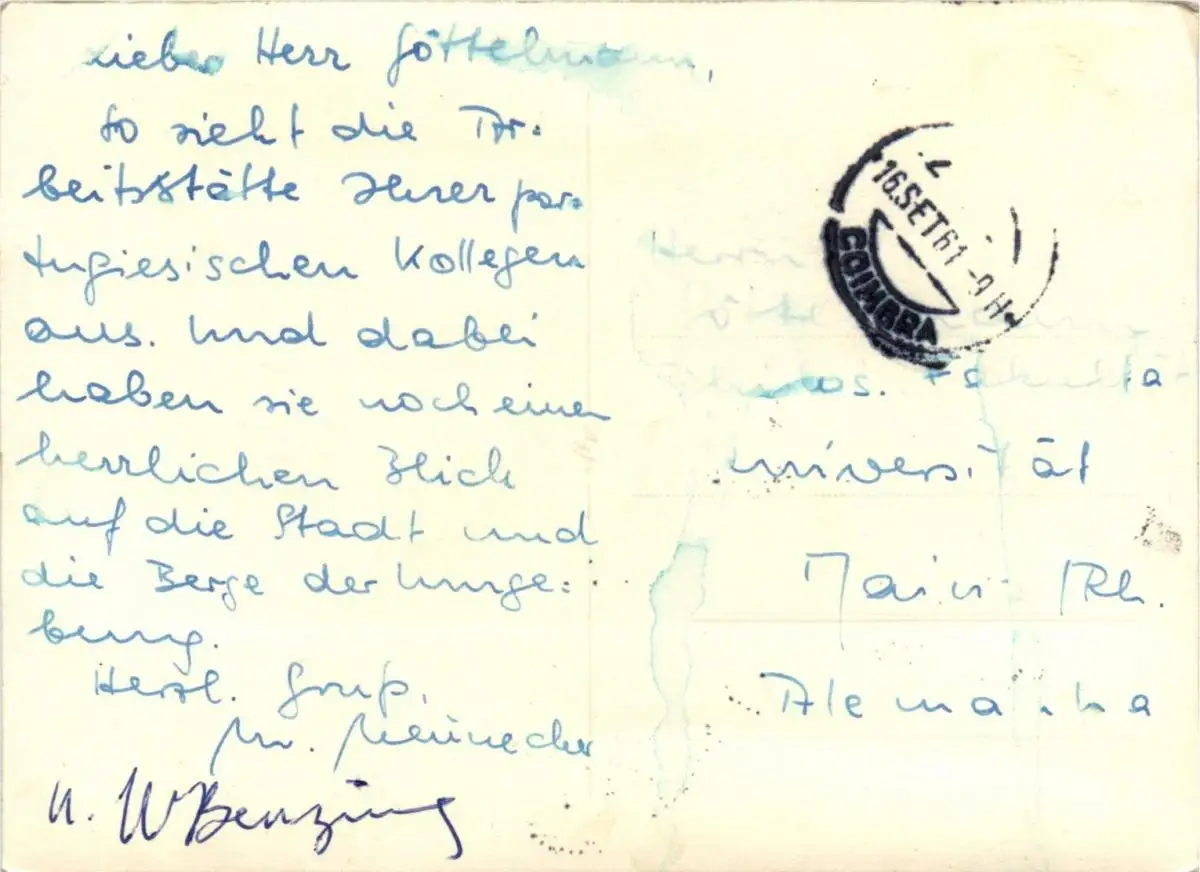 Lieber Herr Göttelmann,
so sieht die Ar-
beitsstätte Ihrer por-
tugiesischen Kollegen
aus. Und dabei
haben sie noch einen
herrlichen Blick
auf die Stadt und
die Berge der Umge-
bung.
Herzl. Gruß,
u. W Benzing
16.SET61-9H
COIMBRA
Herrn
Philos. Fakultät
Universität
Mainz /Rh.
Alemanha